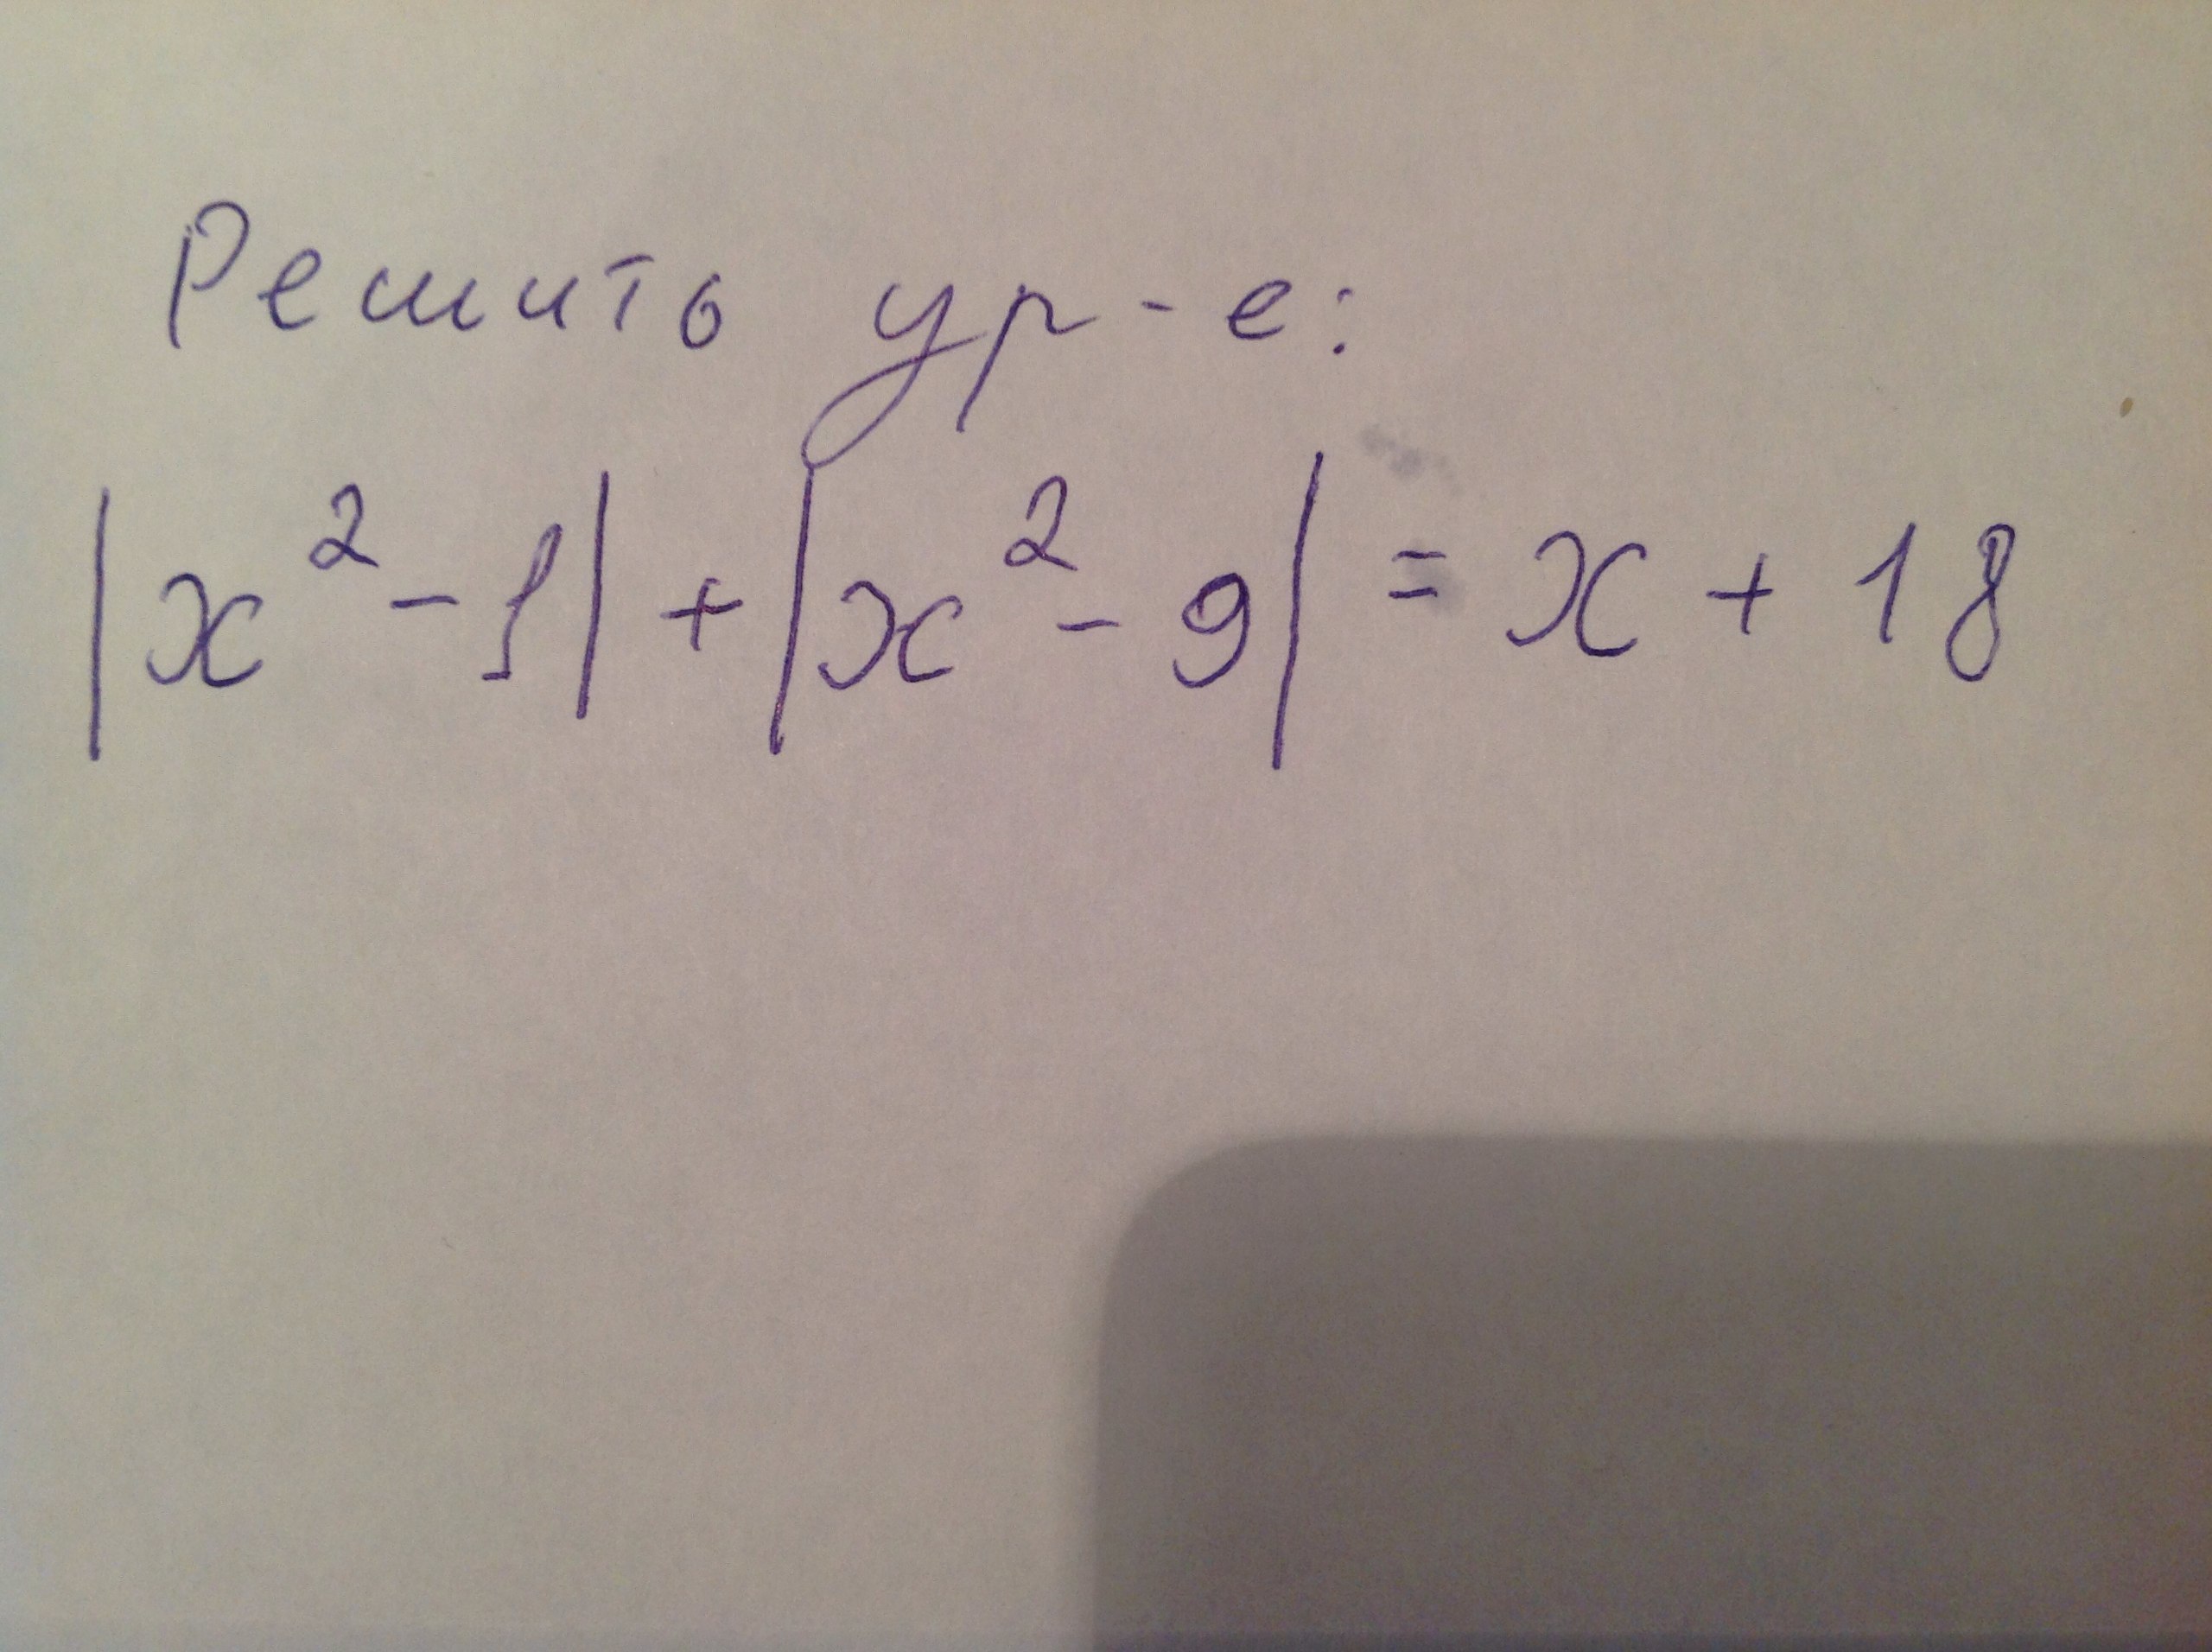 Решить ур-е:
|x²-1|+|x²-9|=x+18